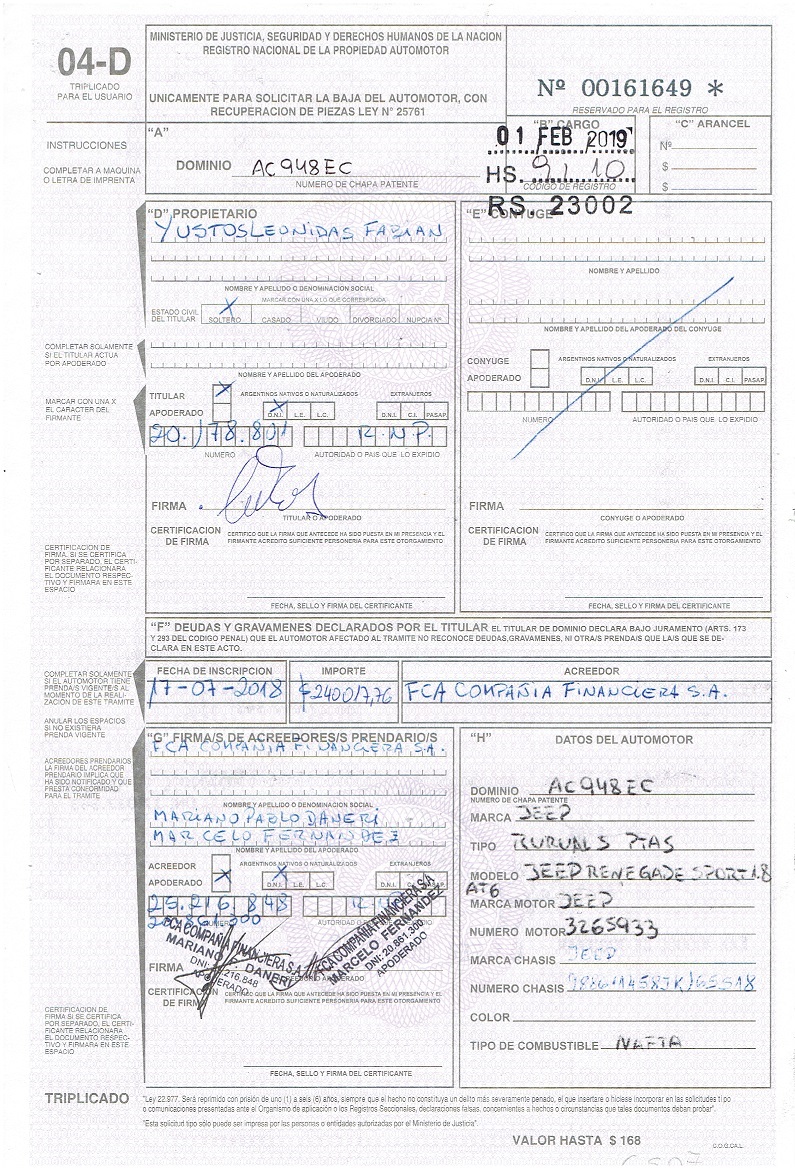 04-D
TRIPLICADO
PARA EL USUARIO
MINISTERIO DE JUSTICIA, SEGURIDAD Y DERECHOS HUMANOS DE LA NACION
REGISTRO NACIONAL DE LA PROPIEDAD AUTOMOTOR
UNICAMENTE PARA SOLICITAR LA BAJA DEL AUTOMOTOR, CON
RECUPERACION DE PIEZAS LEY N° 25761
Nº 00161649 *
RESERVADO PARA EL REGISTRO
INSTRUCCIONES
COMPLETAR A MAQUINA
O LETRA DE IMPRENTA
"A"
DOMINIO AC948EC
NUMERO DE CHAPA PATENTE
"B" CARGO
01 FEB 2019
HS. 9:10
CODIGO DE REGISTRO
RS. 23002
"C" ARANCEL
Nº
$
$
"D" PROPIETARIO
YUSTOS LEONIDAS FABIAN
NOMBRE Y APELLIDO O DENOMINACION SOCIAL
MARCAR CON UNA X LO QUE CORRESPONDA
ESTADO CIVIL
DEL TITULAR
X
SOLTERO CASADO VIUDO DIVORCIADO NUPCIA Nº
COMPLETAR SOLAMENTE
SI EL TITULAR ACTUA
POR APODERADO
NOMBRE Y APELLIDO DEL APODERADO
MARCAR CON UNA X
EL CARACTER DEL
FIRMANTE
TITULAR X ARGENTINOS NATIVOS O NATURALIZADOS EXTRANJEROS
APODERADO X D.N.I. L.E. L.C. D.N.I. C.I. PASAP.
20.178.801 R.N.P.
NUMERO AUTORIDAD O PAIS QUE LO EXPIDIO
FIRMA
TITULAR O APODERADO
CERTIFICACION
DE FIRMA
CERTIFICO QUE LA FIRMA QUE ANTECEDE HA SIDO PUESTA EN MI PRESENCIA Y EL
FIRMANTE ACREDITO SUFICIENTE PERSONERIA PARA ESTE OTORGAMIENTO
CERTIFICACION DE
FIRMA. SI SE CERTIFICA
POR SEPARADO, EL CERTI-
FICANTE RELACIONARA
EL DOCUMENTO RESPEC-
TIVO Y FIRMARA EN ESTE
ESPACIO
FECHA, SELLO Y FIRMA DEL CERTIFICANTE
"E" CONYUGE
NOMBRE Y APELLIDO
NOMBRE Y APELLIDO DEL APODERADO DEL CONYUGE
CONYUGE ARGENTINOS NATIVOS O NATURALIZADOS EXTRANJEROS
APODERADO D.N.I. L.E. L.C. D.N.I. C.I. PASAP.
NUMERO AUTORIDAD O PAIS QUE LO EXPIDIO
FIRMA
CONYUGE O APODERADO
CERTIFICACION
DE FIRMA
CERTIFICO QUE LA FIRMA QUE ANTECEDE HA SIDO PUESTA EN MI PRESENCIA Y EL
FIRMANTE ACREDITO SUFICIENTE PERSONERIA PARA ESTE OTORGAMIENTO
FECHA, SELLO Y FIRMA DEL CERTIFICANTE
"F" DEUDAS Y GRAVAMENES DECLARADOS POR EL TITULAR EL TITULAR DE DOMINIO DECLARA BAJO JURAMENTO (ARTS. 173
Y 293 DEL CODIGO PENAL) QUE EL AUTOMOTOR AFECTADO AL TRAMITE NO RECONOCE DEUDAS,GRAVAMENES, NI OTRA/S PRENDA/S QUE LA/S QUE SE DE-
CLARA EN ESTE ACTO.
COMPLETAR SOLAMENTE
SI EL AUTOMOTOR TIENE
PRENDA/S VIGENTE/S AL
MOMENTO DE LA REALI-
ZACIÓN DE ESTE TRAMITE
ANULAR LOS ESPACIOS
SI NO EXISTIERA
PRENDA VIGENTE
FECHA DE INSCRIPCION IMPORTE ACREEDOR
17-07-2018 $240017,76 FCA COMPAÑIA FINANCIERA S.A.
ACREEDORES PRENDARIOS
LA FIRMA DEL ACREEDOR
PRENDARIO IMPLICA QUE
HA SIDO NOTIFICADO Y QUE
PRESTA CONFORMIDAD
PARA EL TRAMITE
"G" FIRMA/S DE ACREEDORES/S PRENDARIO/S
FCA COMPAÑIA FINANCIERA S.A.
NOMBRE Y APELLIDO O DENOMINACION SOCIAL
MARIANO PABLO DANERI
MARCELO FERNANDEZ
NOMBRE Y APELLIDO DEL APODERADO
ACREEDOR ARGENTINOS NATIVOS O NATURALIZADOS EXTRANJEROS
APODERADO X X D.N.I. L.E. L.C. D.N.I. C.I. PASAP.
23.216.848
20.861.300
FCA COMPAÑIA FINANCIERA S.A.
MARIANO P. DANERI
APODERADO
FCA COMPAÑIA FINANCIERA SA
MARCELO FERNANDEZ
DNI: 20.861.300
APODERADO
FIRMA
CERTIFICACION
DE FIRMA
CERTIFICO QUE LA FIRMA QUE ANTECEDE HA SIDO PUESTA EN MI PRESENCIA Y EL
FIRMANTE ACREDITO SUFICIENTE PERSONERIA PARA ESTE OTORGAMIENTO
CERTIFICACION DE
FIRMA SI SE CERTIFICA
POR SEPARADO, EL CERTI-
FICANTE RELACIONARA
EL DOCUMENTO RESPEC-
TIVO Y FIRMARA EN ESTE
ESPACIO
FECHA, SELLO Y FIRMA DEL CERTIFICANTE
"H" DATOS DEL AUTOMOTOR
DOMINIO AC948EC
NUMERO DE CHAPA PATENTE
MARCA JEEP
TIPO RURAL 5 PTAS
MODELO JEEP RENEGADE SPORT 1.8
AT6
MARCA MOTOR JEEP
NUMERO MOTOR 3265933
MARCA CHASIS JEEP
NUMERO CHASIS
COLOR
TIPO DE COMBUSTIBLE NAFTA
TRIPLICADO
"Ley 22.977. Será reprimido con prisión de uno (1) a seis (6) años, siempre que el hecho no constituya un delito más severamente penado, el que insertare o hiciese incorporar en las solicitudes tipo
o comunicaciones presentadas ante el Organismo de aplicación o los Registros Seccionales, declaraciones falsas, concernientes a hechos o circunstancias que tales documentos deban probar".
"Esta solicitud tipo sólo puede ser impresa por las personas o entidades autorizadas por el Ministerio de Justicia".
VALOR HASTA $ 168